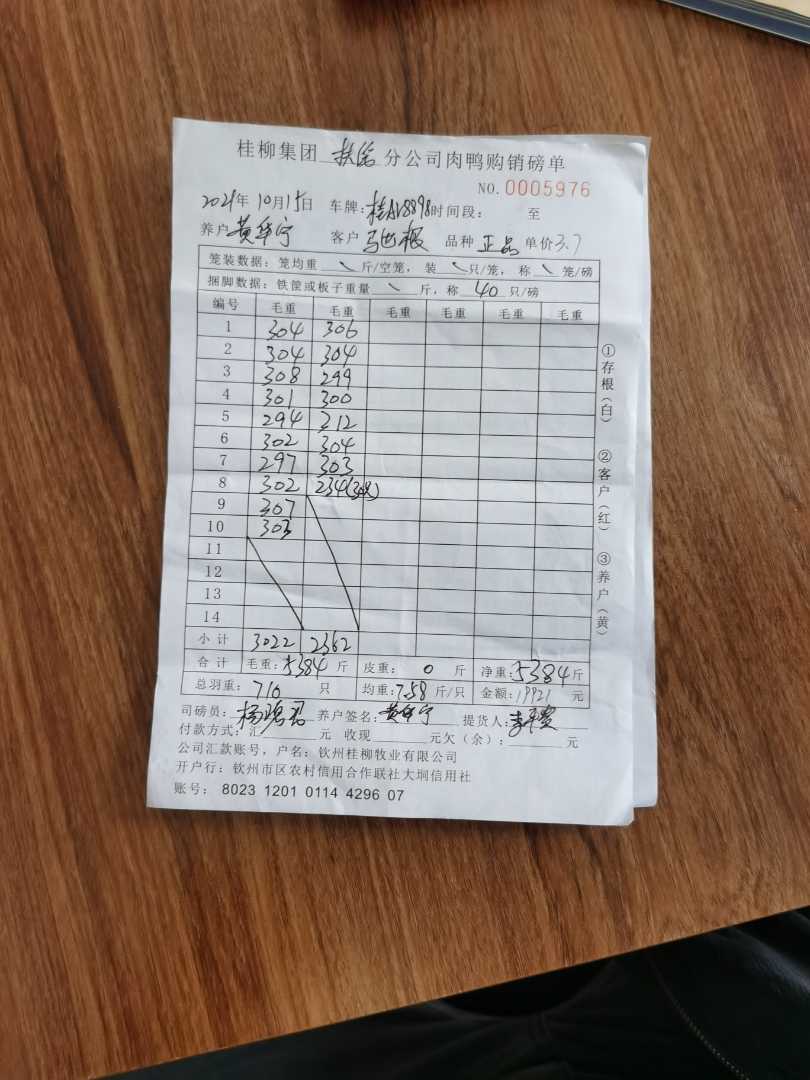 桂柳集团 扶绥 分公司肉鸭购销磅单
NO. 0005976
2021年10月15日 车牌:桂AV8898 时间段: 至
养户 黄华宁 客户 马世根 品种 正品 单价3.7
笼装数据: 笼均重 \ 斤/空笼, 装 \ 只/笼, 称 \ 笼/磅
捆脚数据: 铁筐或板子重量 \ 斤, 称 40 只/磅
编号 毛重 毛重 毛重 毛重 毛重 毛重
1 304 306
2 304 304
3 308 299
4 301 300
5 294 312
6 302 304
7 297 303
8 302 234
9 307
10 303
11
12
13
14
小计 3022 2362
合计 毛重:5384斤 皮重: 0 斤 净重:5384斤
总羽重: 710 只 均重:7.58斤/只 金额:19921 元
司磅员: 养户签名:黄华宁 提货人:
付款方式:汇 元 收现 元欠(余): 元
公司汇款账号,户名:钦州桂柳牧业有限公司
开户行:钦州市区农村信用合作联社大垌信用社
账号: 8023 1201 0114 4296 07
①存根(白) ②客户(红) ③养户(黄)